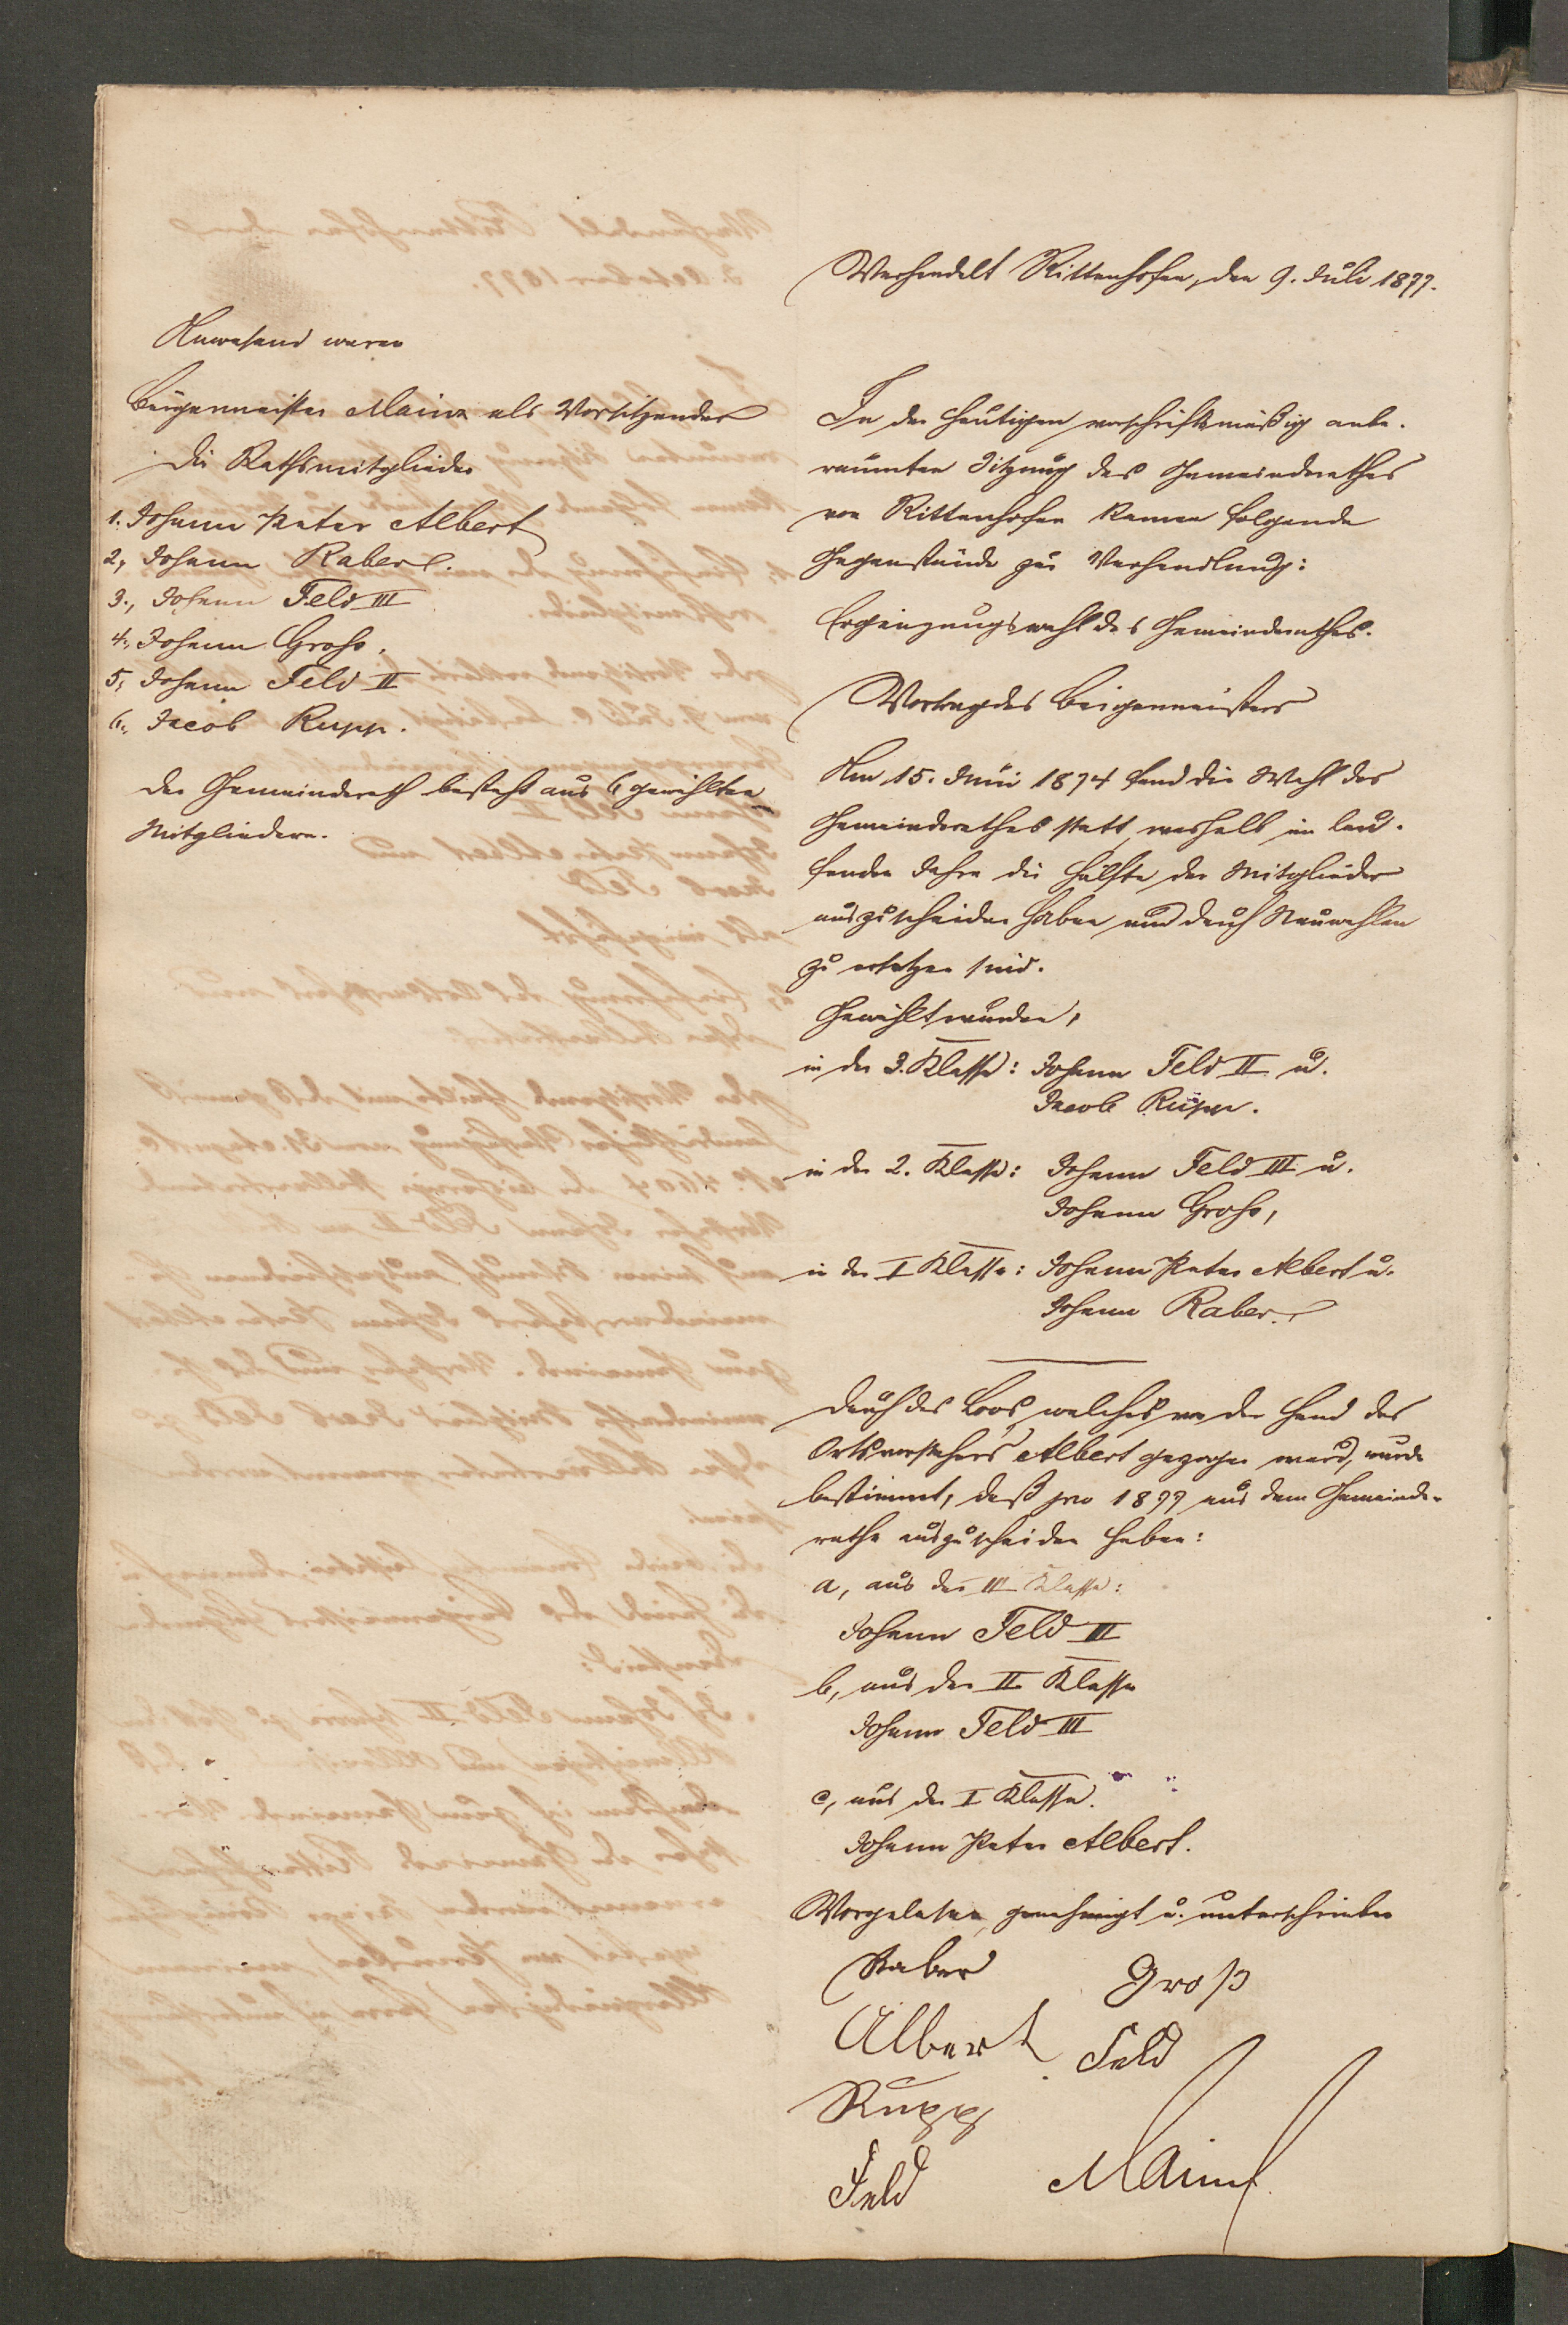 Verhandelt Rittenhofen, den 9. Juli 1877.
Anwesend waren
Bürgermeister Mainz als Vorsitzender
Die Rathsmitglieder
1. Johann Peter Albert
2, Johann Raber.
3., Johann Feld III
4., Johann Groß.
5, Johann Feld II
6., Jacob Rupp.
Der Gemeinderath besteht aus 6 gewählten
Mitgliedern.
In der heutigen vorschriftsmäßig anbe-
raumten Sitzung des Gemeinderathes
von Rittenhofen kamen folgende
Gegenstände zur Verhandlung:
Ergänzungswahl des Gemeinderathes.
Vortrag des Bürgermeisters
Am 15. Juni 1874 fand die Wahl des
Gemeinderathes statt, weshalb im lau-
fenden Jahre die Hälfte der Mitglieder
auszuscheiden haben und durch Neuwahlen
zu ersetzen sind.
Gewählt wurden,
in der 3. Klasse: Johann Feld II u.
Jacob Rupp.
in der 2. Klasse: Johann Feld III u.
Johann Groß,
in der I Klasse: Johann Peter Albert u.
Johann Raber.
Durch das Loos, welches von der Hand des
Ortsvorstehers Albert gezogen ward, wurde
bestimmt, daß pro 1877 aus dem Gemeinde-
rathe auszuscheiden haben:
a, aus der III Klasse:
Johann Feld II
b, aus der II Klasse
Johann Feld III
c, aus der I Klasse.
Johann Peter Albert.
Vorgelesen, genehmigt u. unterschrieben
Raber Groß
Albert Feld
Rupp
Feld Mainz